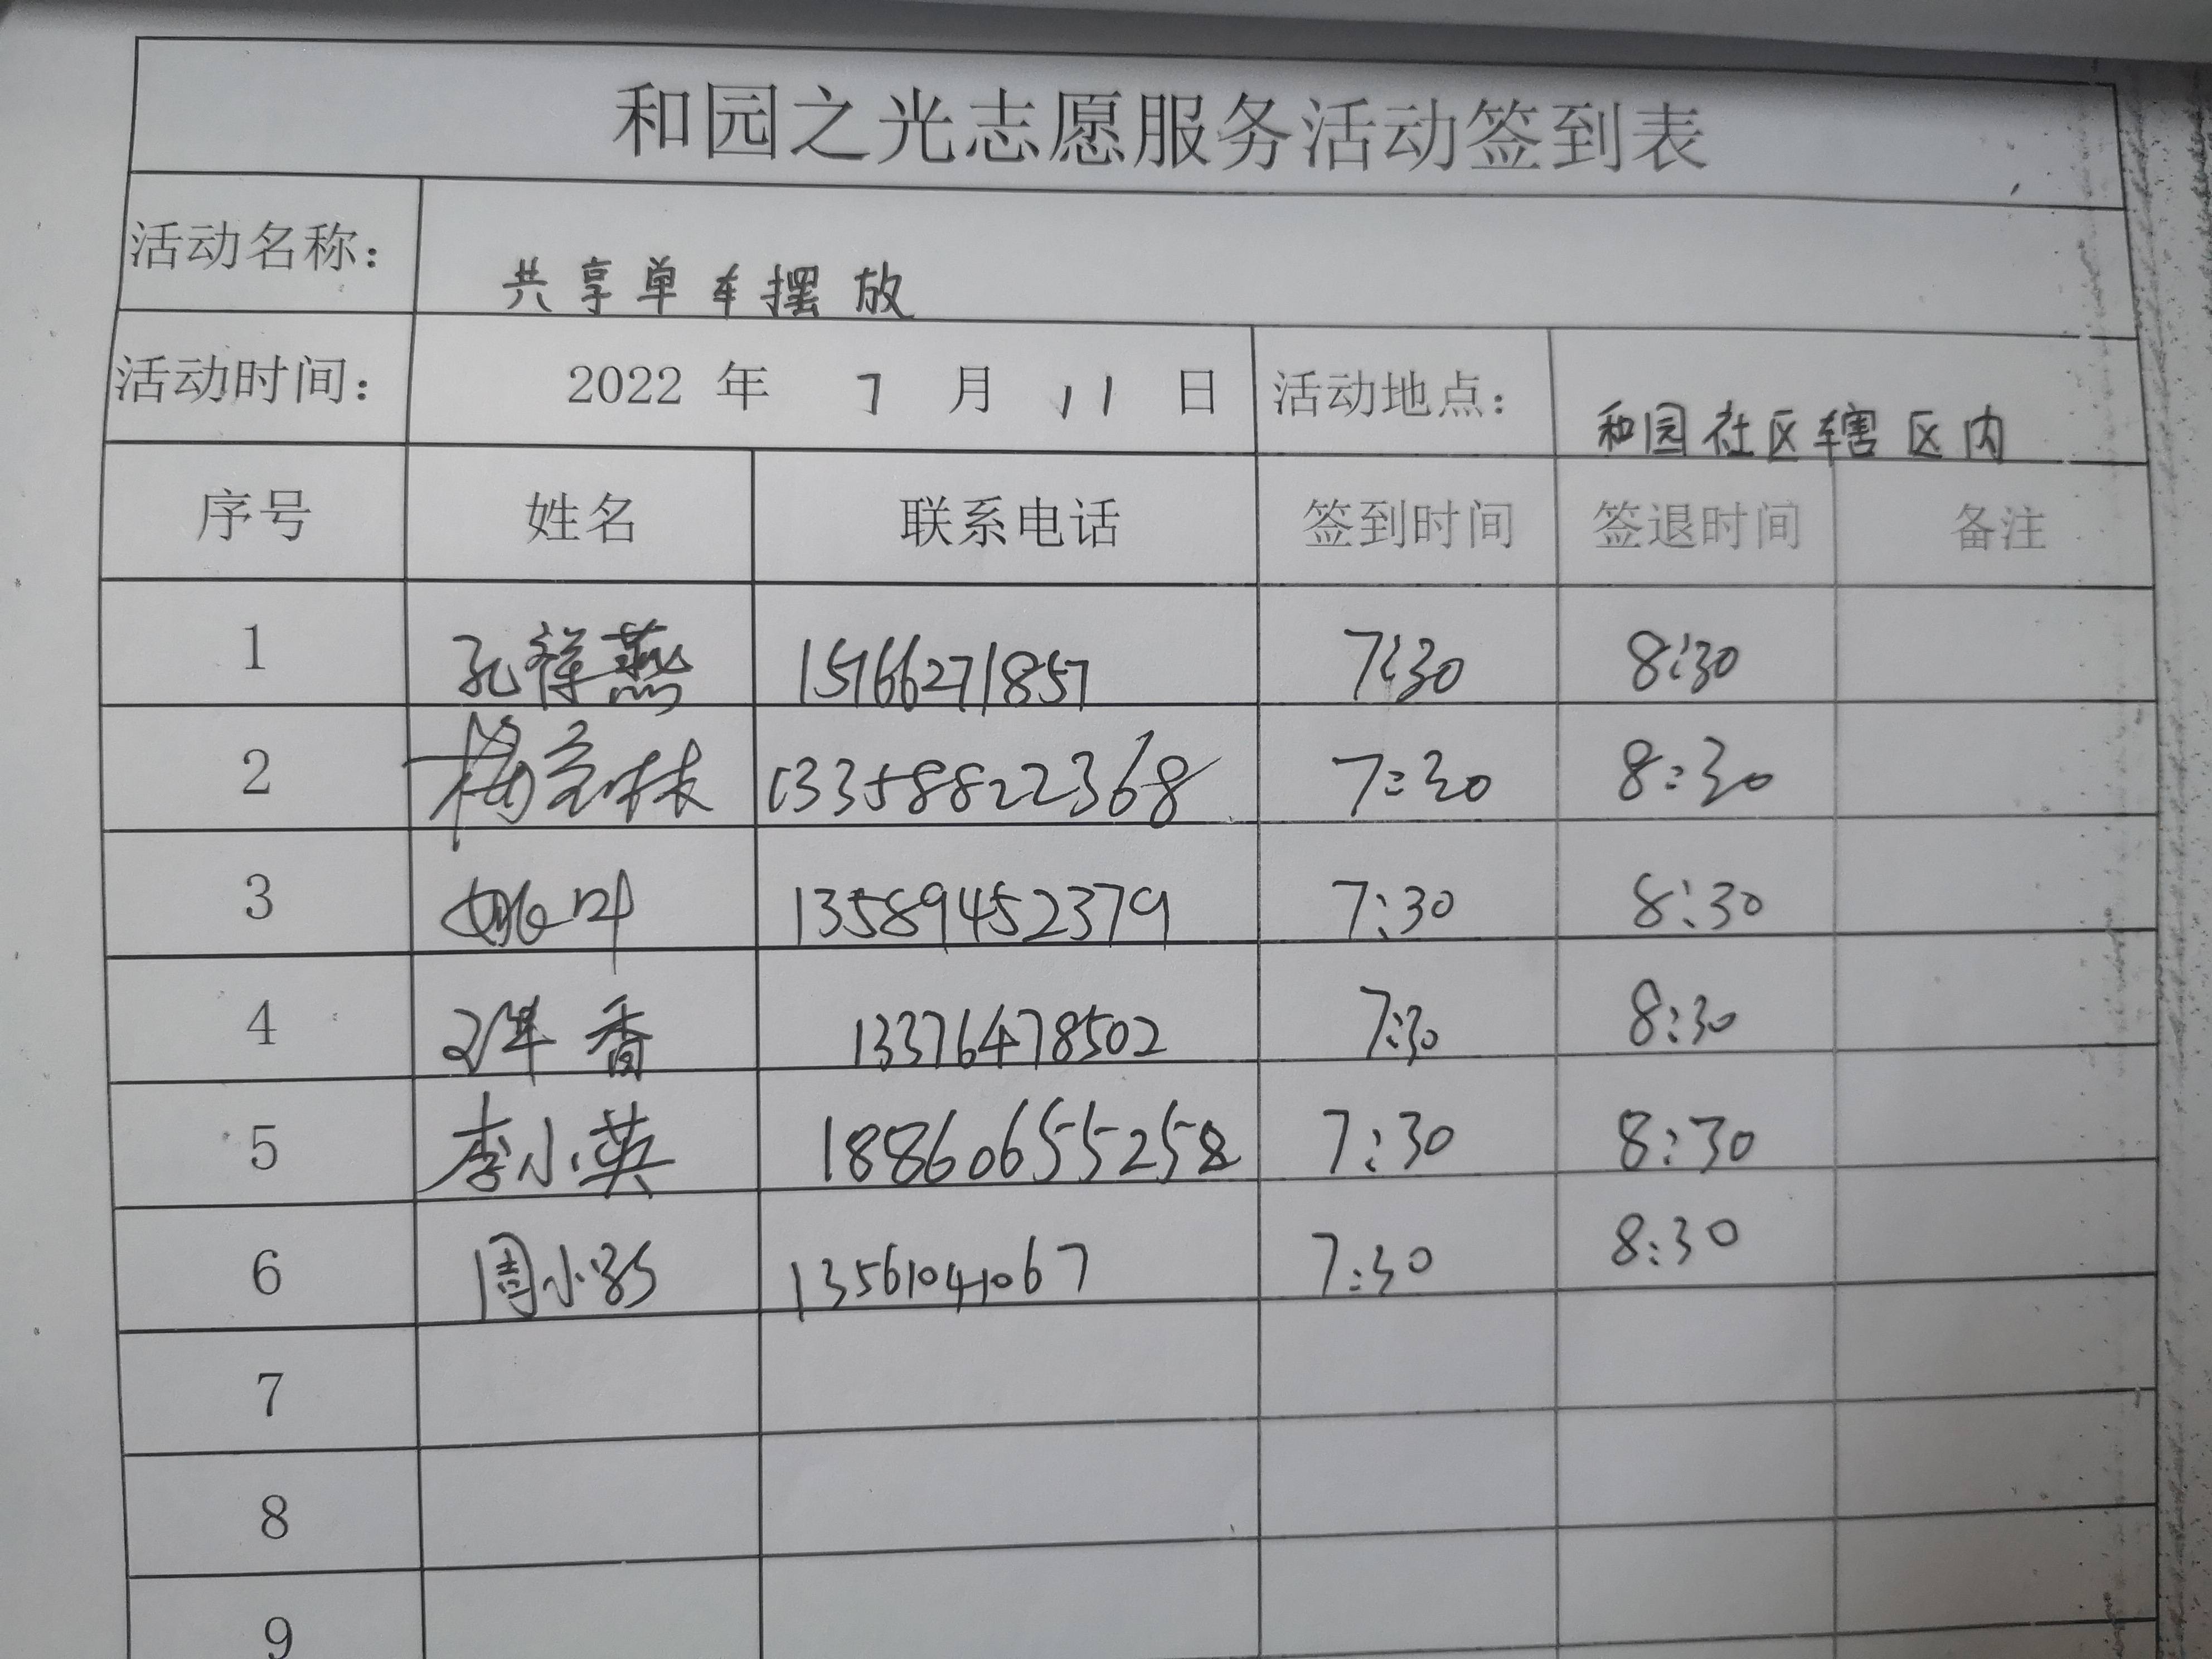 和园之光志愿服务活动签到表
活动名称： 共享单车摆放
活动时间： 2022 年 7 月 11 日 活动地点： 和园社区辖区内
序号 姓名 联系电话 签到时间 签退时间 备注
1 孔祥燕 15166271857 7:30 8:30
2 13358822368 7:30 8:30
3 姚叶 13589452379 7:30 8:30
4 香 13376478502 7:30 8:30
5 李小英 18860655258 7:30 8:30
6 周小 13561041067 7:30 8:30
7
8
9